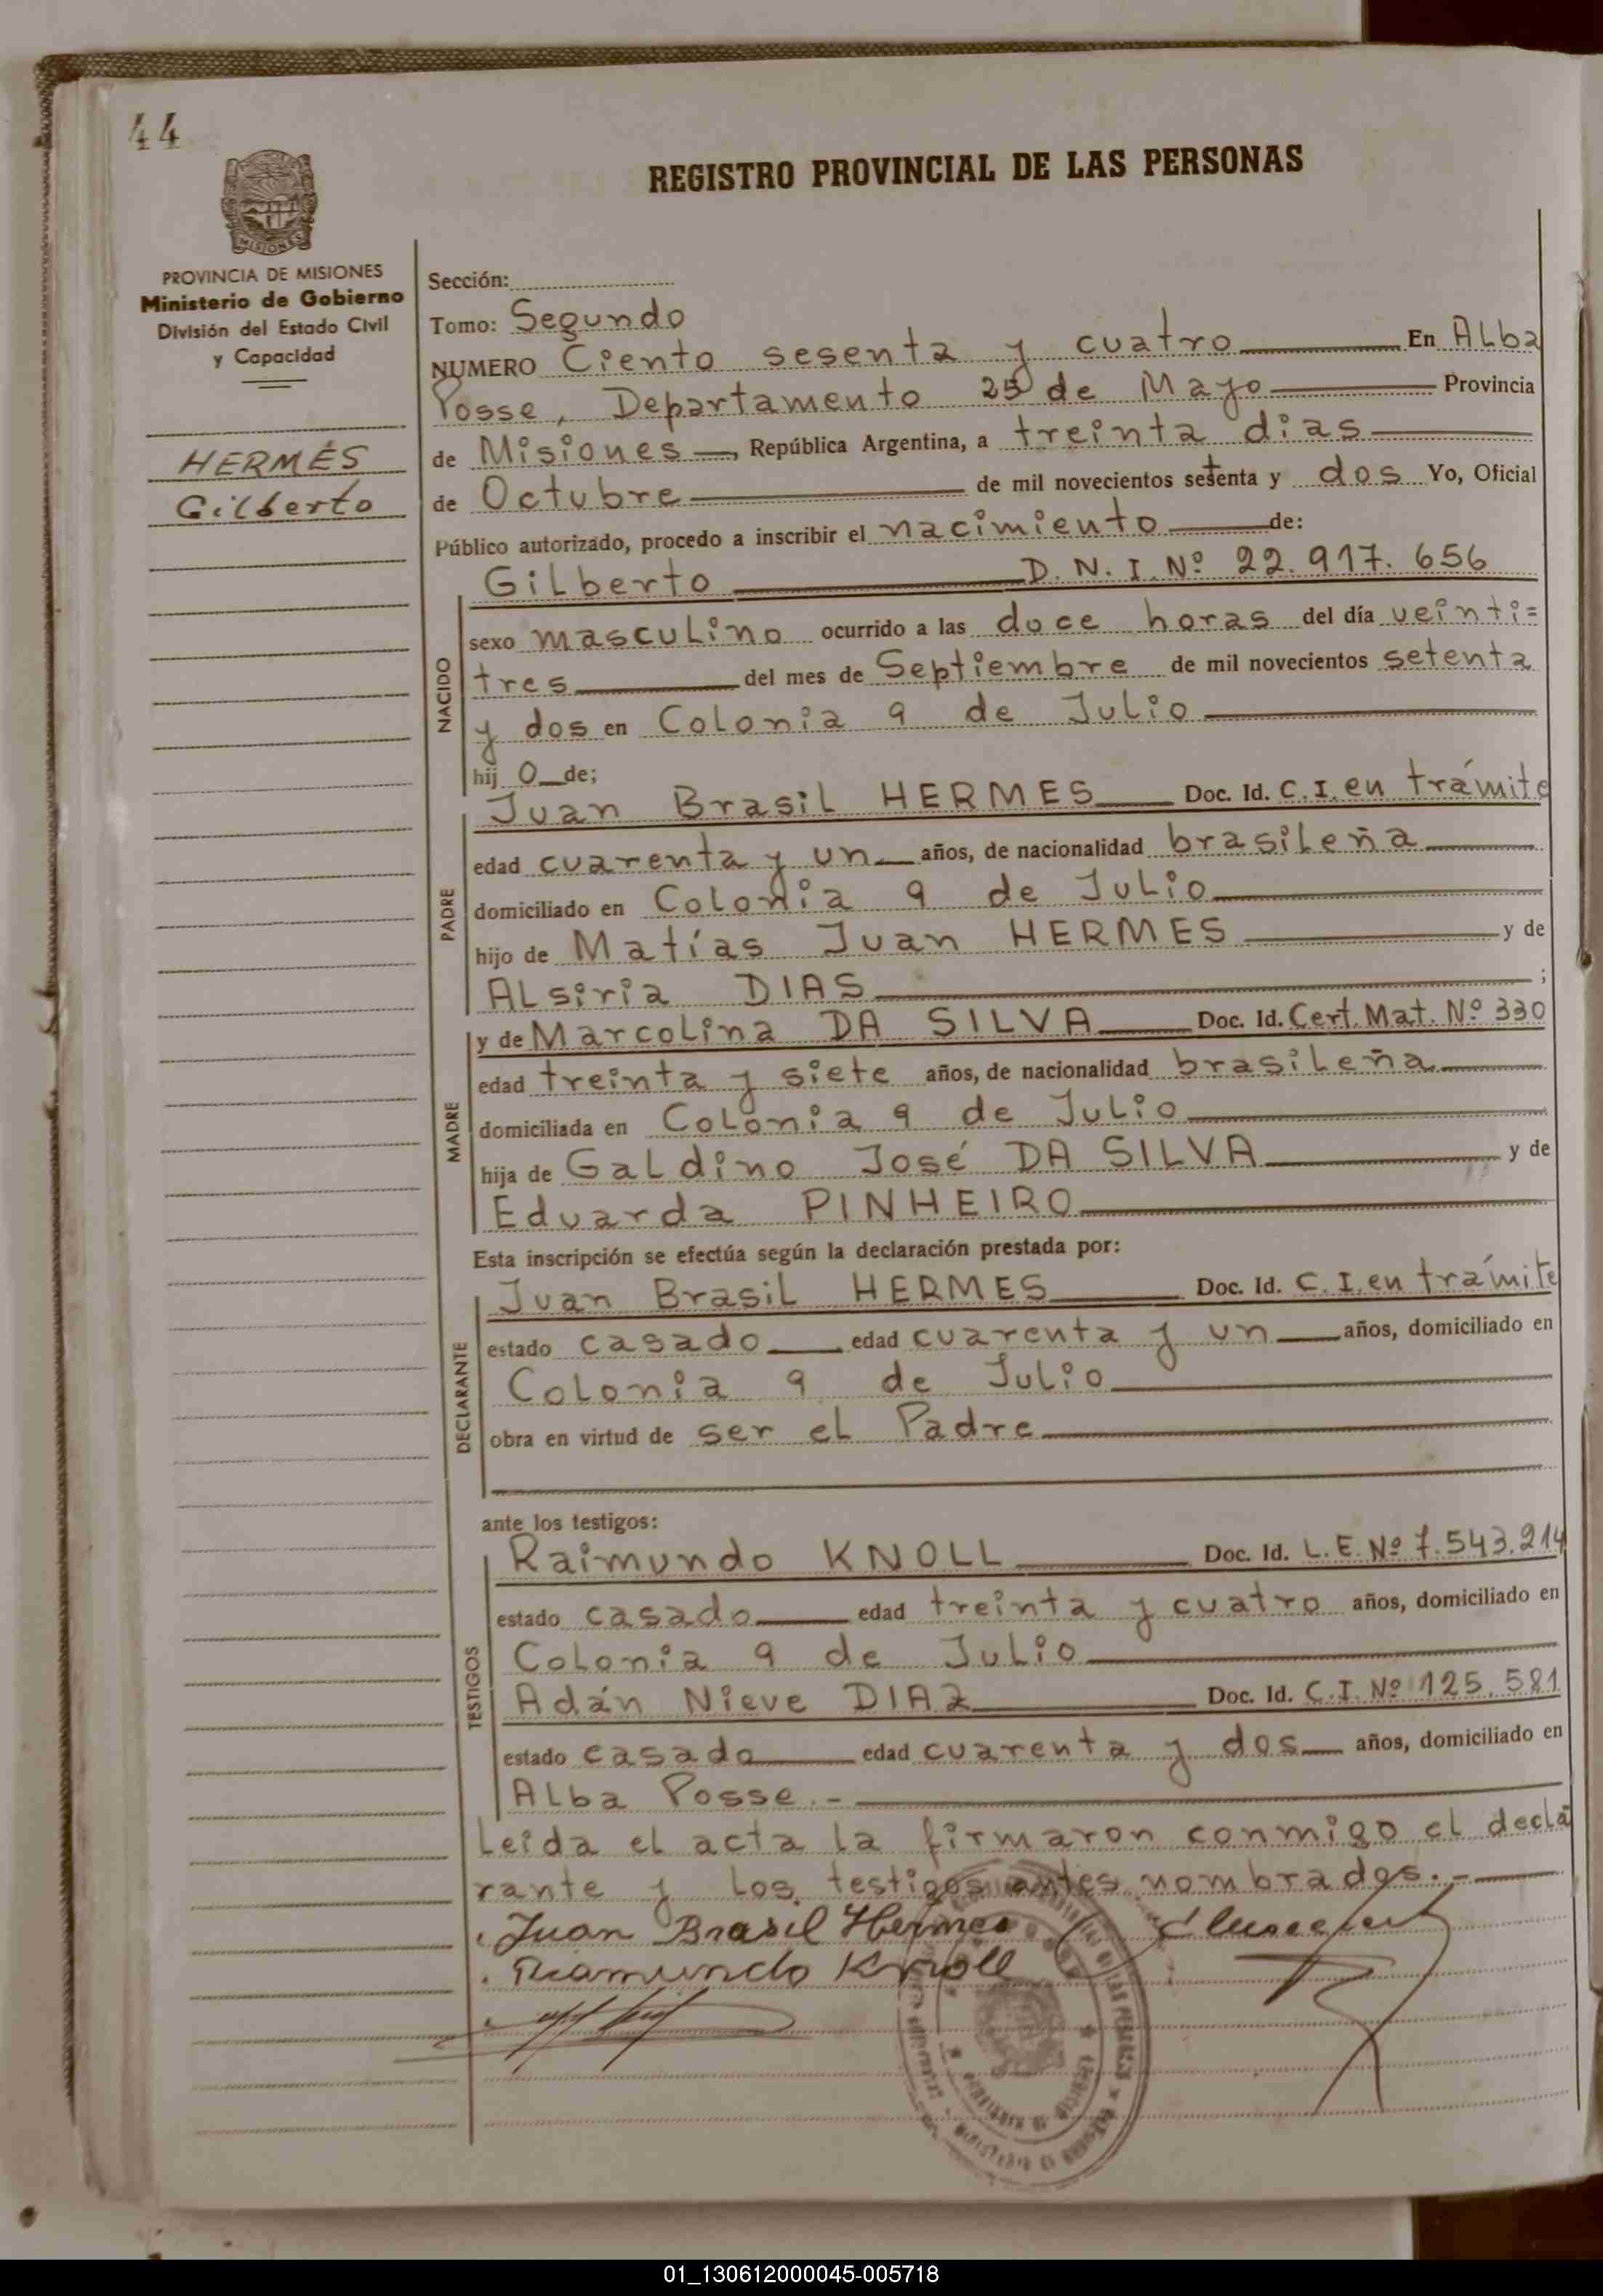 44
MISIONES
PROVINCIA DE MISIONES
Ministerio de Gobierno
División del Estado Civil
y Capacidad
HERMES
Gilberto
REGISTRO PROVINCIAL DE LAS PERSONAS
Sección:
Tomo: Segundo
NUMERO Ciento sesenta y cuatro En Alba
Posse, Departamento 25 de Mayo Provincia
de Misiones, República Argentina, a treinta dias
de Octubre de mil novecientos setenta y dos Yo, Oficial
Público autorizado, procedo a inscribir el nacimiento de:
NACIDO
Gilberto D.N.I. Nº 22.917.656
sexo masculino ocurrido a las doce horas del día veinti=
tres del mes de Septiembre de mil novecientos setenta
y dos en Colonia 9 de Julio
hij o de;
PADRE
Juan Brasil HERMES Doc. Id. C.I. en trámite
edad cuarenta y un años, de nacionalidad brasileña
domiciliado en Colonia 9 de Julio
hijo de Matías Juan HERMES y de
Alsiria DIAS ;
MADRE
y de Marcolina DA SILVA Doc. Id. Cert. Mat. Nº 330
edad treinta y siete años, de nacionalidad brasileña
domiciliada en Colonia 9 de Julio
hija de Galdino José DA SILVA y de
Eduarda PINHEIRO
Esta inscripción se efectúa según la declaración prestada por:
DECLARANTE
Juan Brasil HERMES Doc. Id. C.I. en trámite
estado casado edad cuarenta y un años, domiciliado en
Colonia 9 de Julio
obra en virtud de ser el Padre
ante los testigos:
TESTIGOS
Raimundo KNOLL Doc. Id. L.E. Nº 7.543.214
estado casado edad treinta y cuatro años, domiciliado en
Colonia 9 de Julio
Adán Nieve DIAZ Doc. Id. C.I. Nº 125.581
estado casado edad cuarenta y dos años, domiciliado en
Alba Posse.-
Leida el acta la firmaron conmigo el decla
rante y los testigos antes nombrados.-
Juan Brasil Hermes
Raimundo Knoll
01_130612000045-005718